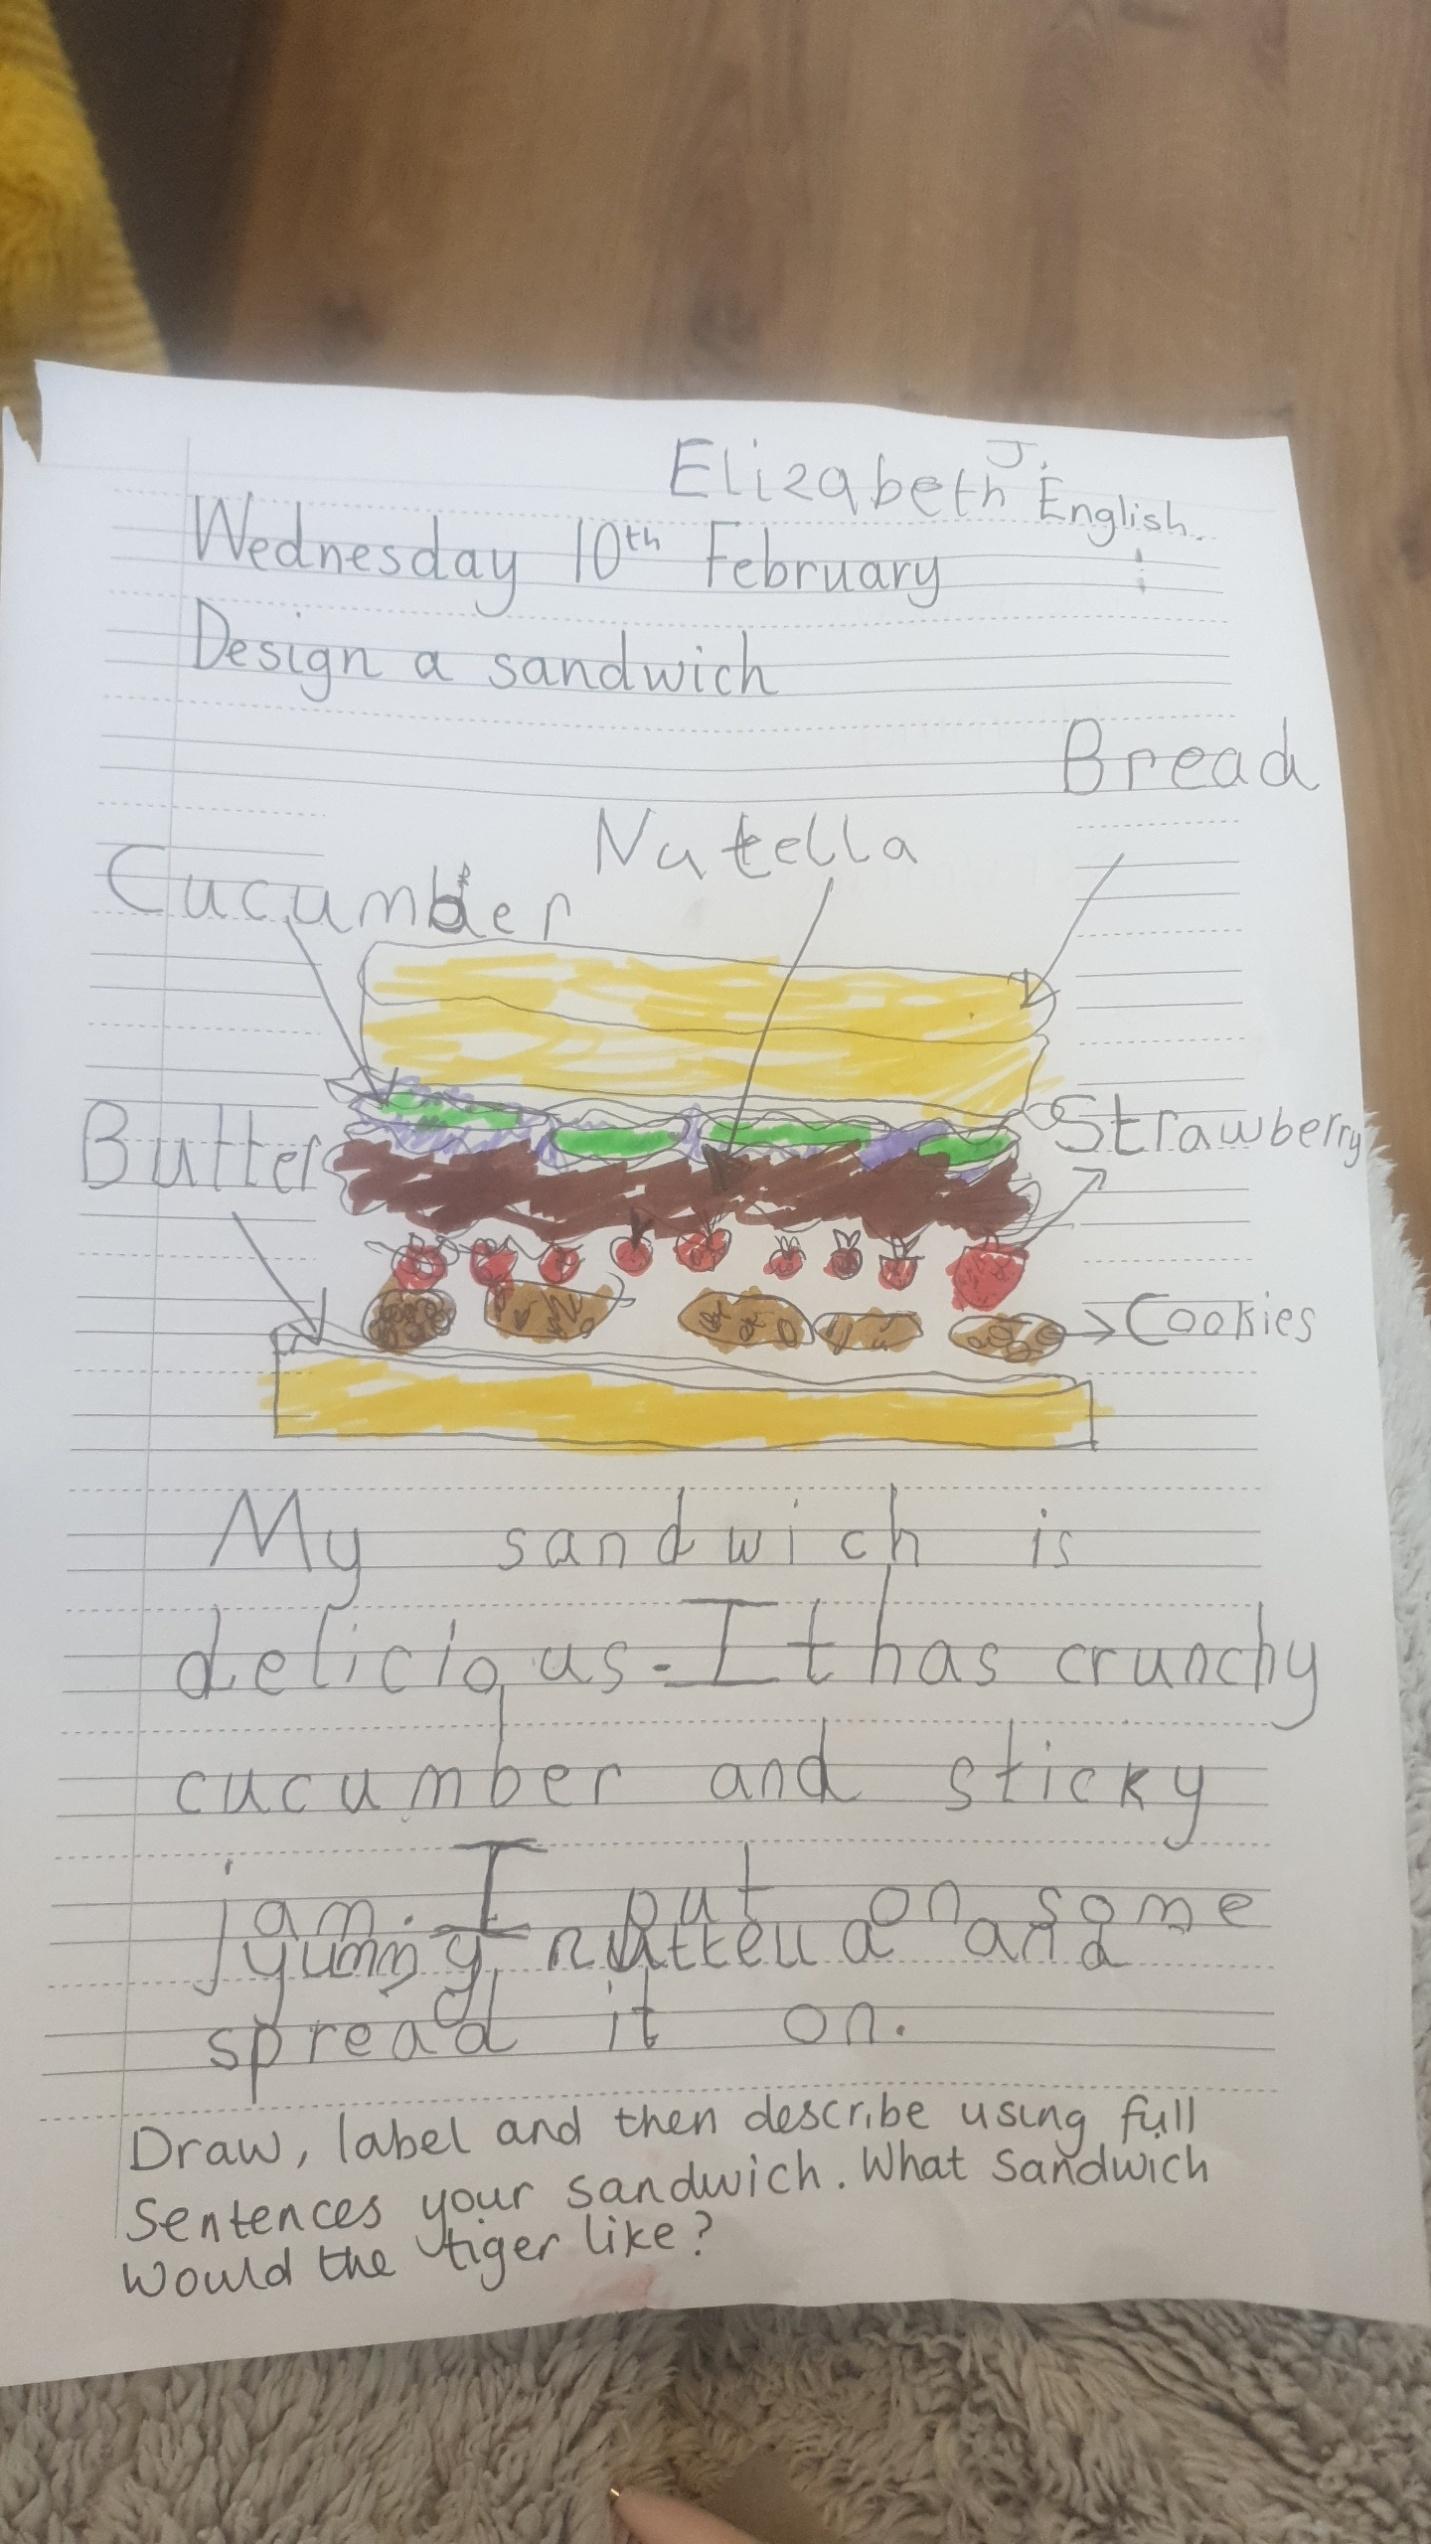 Elizabeth J.
English.
Wednesday 10th February
Design a sandwich
Bread
Nutella
Cucumber
Butter
Strawberry
Cookies
My sandwich is
delicious. It has crunchy
cucumber and sticky
jam. I put on some
yummy nuttella and
spread it on.
Draw, label and then describe using full
sentences your sandwich. What sandwich
would the tiger like?